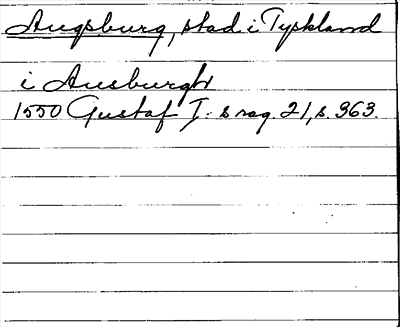 Augsburg, stad i Tyskland
i Ausburgh
1550 Gustaf I:s reg. 21, s. 363.